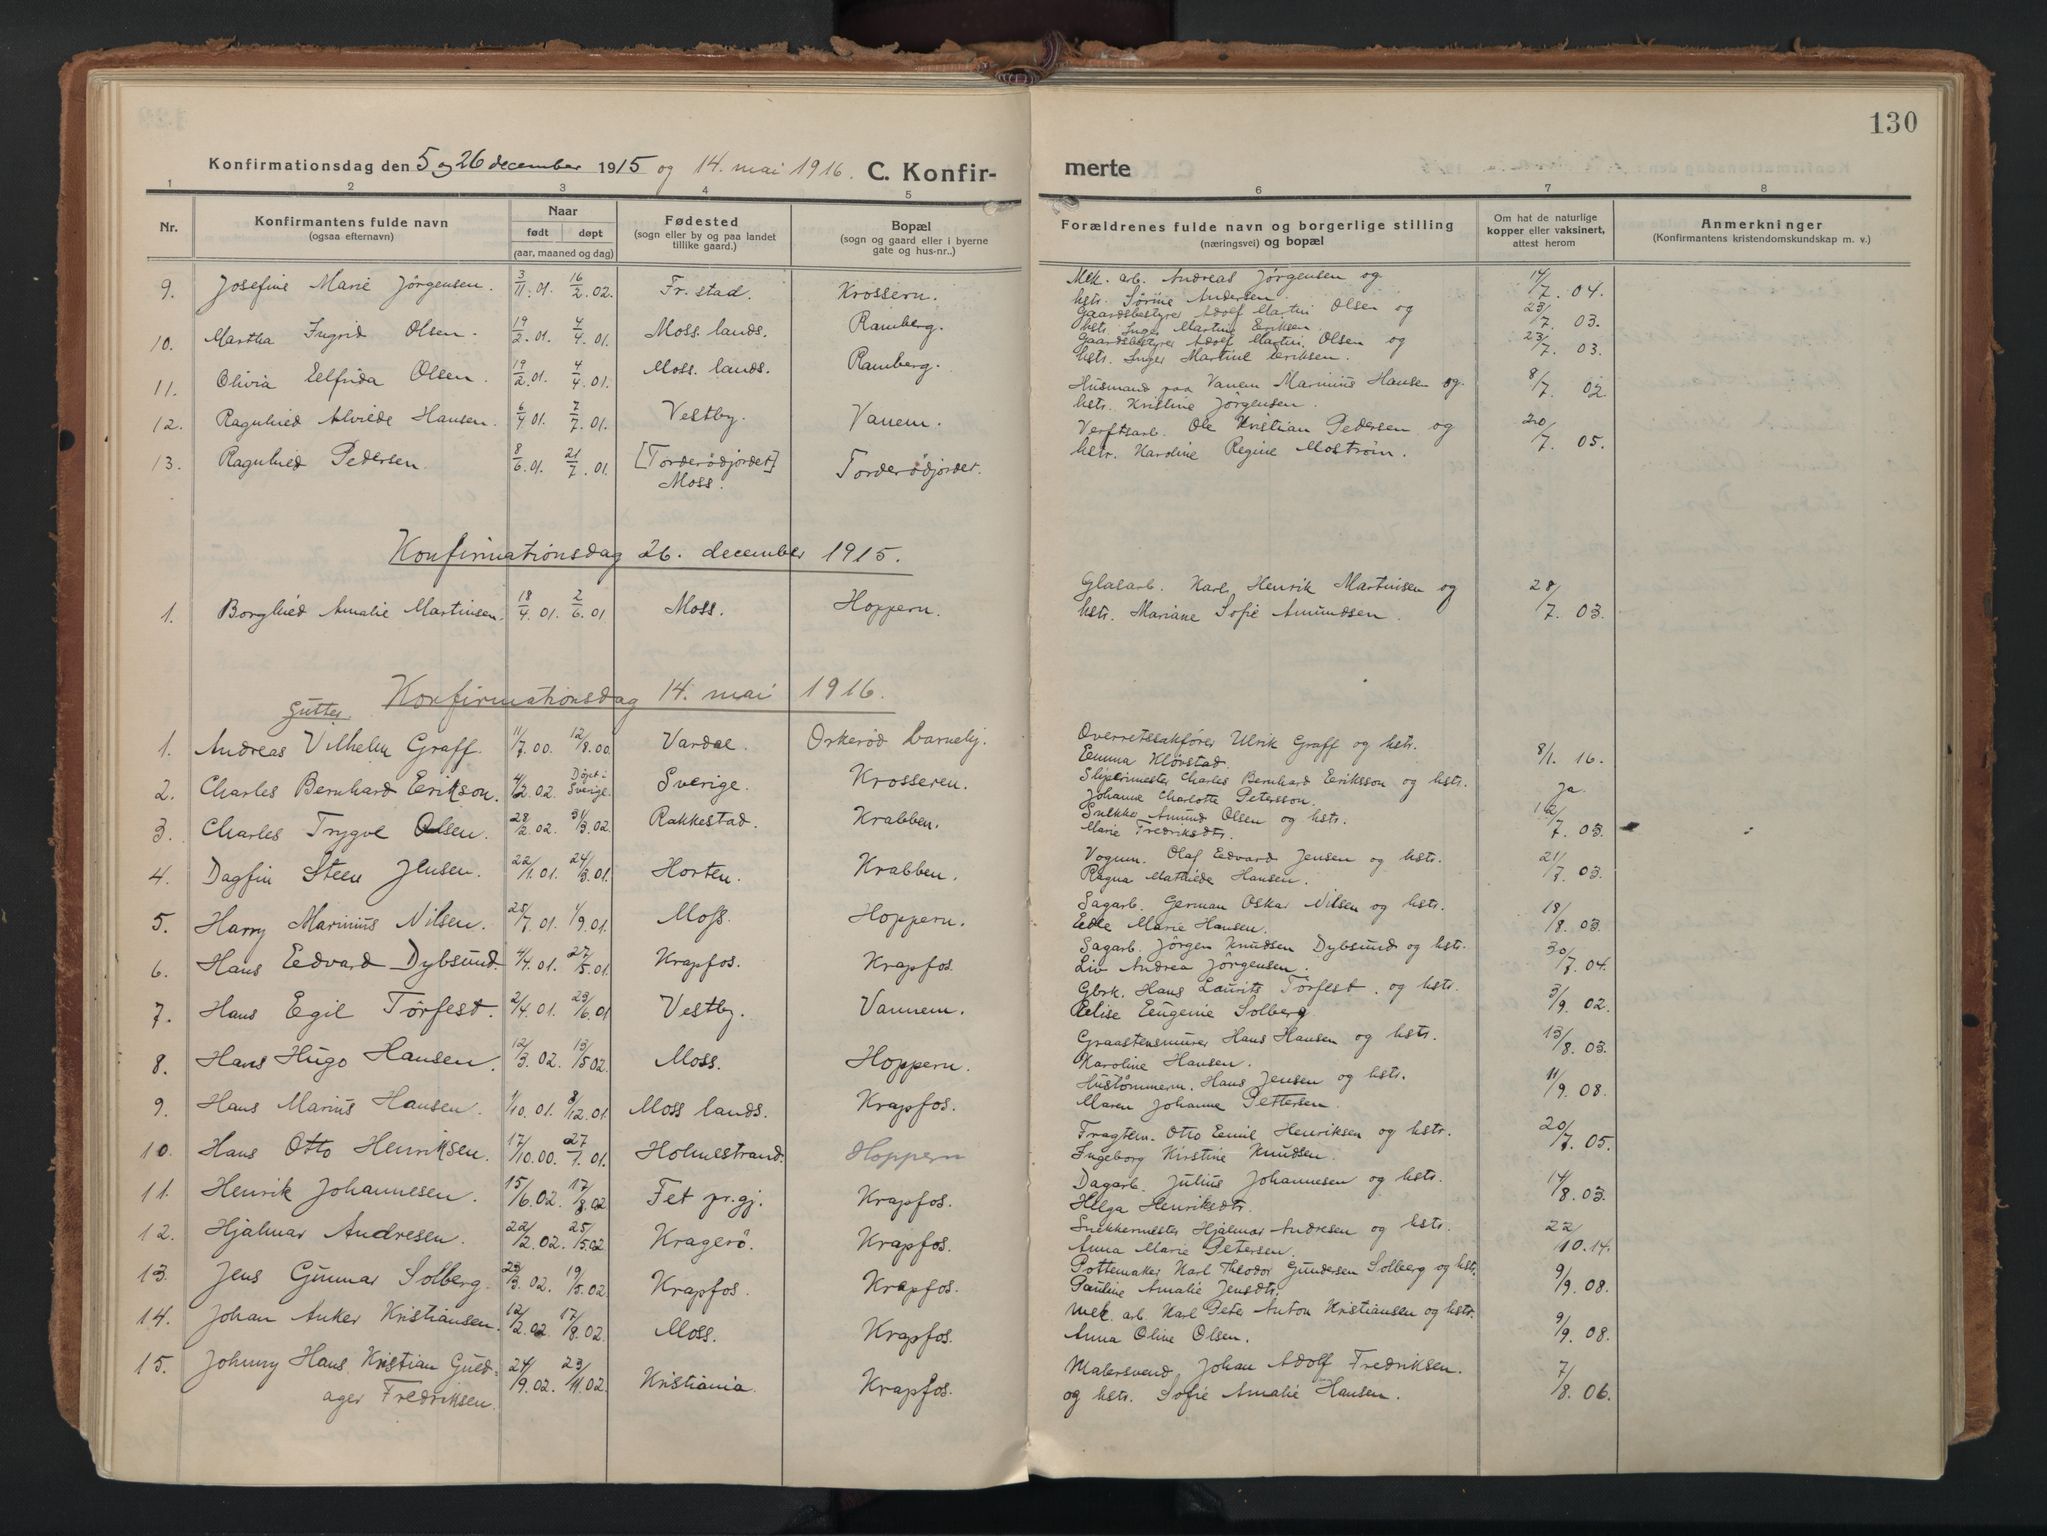 130
Konfirmationsdag den 5 og 26 december 1915 og 14. mai 1916. C. Konfir-
merte
1 2 3 4 5 6 7 8
Nr.
Konfirmantens fulde navn
(ogsaa efternavn)
Naar
født døpt
(aar, maaned og dag)
Fødested
(sogn eller by og paa landet
tillike gaard.)
Bopæl
(sogn og gaard eller i byerne
gate og hus-nr..)
Forældrenes fulde navn og borgerlige stilling
(næringsvei) og bopæl
Om hat de naturlige
kopper eller vaksinert,
attest herom
Anmerkninger
(Konfirmantens kristendomskundskap m. v.)
9. Josefine Marie Jörgensen. 3/11.01. 16/2.02. Fr.stad. Krossern. Mek. arb. Andreas Jörgensen og 14/7.04.
hstr. Sörine Andersen.
10. Martha Ingrid Olsen. 19/2.01. 4/4.01. Moss lands. Ramberg. Gaardsbestyrer Adolf Martin Olsen og 23/7.03.
hstr. Inger Martine Eriksen.
11. Olivia Elfrida Olsen. 19/2.01. 4/4.01. Moss. lands. Ramberg. Gaardsbestyrer Adolf Martin Olsen og 23/7.03.
hstr. Inger Martine Eriksen.
12. Ragnhild Alvilde Hansen. 6/4.01. 7/7.01. Vestby. Vanem. Husmand paa Vanem Marinius Hansen og 8/7.02.
hstr. Kristine Jörgensen.
13. Ragnhild Pedersen. 8/6.01. 21/7.01. [Torderödjordet] Moss. Torderödjordet. Verftsarb. Ole Kristian Pedersen og 20/7.05.
hstr. Karoline Regine Moström.
Konfirmationsdag 26. december 1915.
1. Borghild Amalie Martinsen. 18/4.01. 2/6.01 Moss. Hoppern. Glasarb. Karl Henrik Martinsen og 28/7.03.
hstr. Mariane Sofie Amundsen.
Konfirmationsdag 14. mai 1916.
Gutter.
1. Andreas Vilhelm Graff. 11/7.00. 12/8.00. Vardal. Orkeröd barnehj. Overretssakförer Ulrik Graff og hstr. 8/1.16.
Emma Klövstad.
2. Charles Bernhard Erikson. 4/2.02. Döpt i Sverige. Sverige. Krosseren. Sliperimester Charles Bernhard Eriksson og hstr. Ja.
Johanne Charlotte Petersson.
3. Charles Trygve Olsen. 28/2.02. 31/3.02. Rakkestad. Krabben. Snekker Amund Olsen og hstr. 12/7.03.
Marie Fredriksdtr.
4. Dagfin Steen Jensen. 22/1.01. 24/3.01. Horten. Krabben. Vognm. Olaf Edvard Jensen og hstr. 21/7.03.
Ragna Mathilde Hansen.
5. Harry Marinius Nilsen. 25/7.01. 1/9.01. Moss. Hoppern. Sagarb. German Oskar Nilsen og hstr. 18/8.03.
Edle Marie Hansen.
6. Hans Edvard Dybsund. 4/4.01. 27/5.01. Krapfos. Krapfos. Sagarb. Jörgen Knudsen Dybsund og hstr. 30/7.04.
Liv Andrea Jörgensen.
7. Hans Egil Törfest. 2/4.01. 23/6.01 Vestby. Vannem. Gbrk. Hans Laurits Törfest. og hstr. 3/9.02.
Elise Eugenie Solberg.
8. Hans Hugo Hansen. 12/3.02. 13/5.02. Moss. Hoppern. Graastensmurer Hans Hansen og hstr. 13/8.03.
Karoline Hansen.
9. Hans Marius Hansen. 1/10.01. 8/12.01. Moss lands. Krapfos. Hustömmerm. Hans Jensen og hstr. 11/9.08.
Maren Johanne Pettersen.
10. Hans Otto Henriksen. 17/10.00. 27/1.01. Holmestrand. Hoppern Fragtem. Otto Emil Henriksen og hstr. 20/7.05.
Ingeborg Kirstine Knudsen.
11. Henrik Johannesen. 15/6.02. 17/8.02 Fet pr.gj. Krapfos. Dagarb. Julius Johannesen og hstr. 14/8.03.
Helga Henriksdtr.
12. Hjalmar Andresen. 22/2.02. 25/5.02 Kragerö. Krapfos. Snekkermester Hjalmar Andresen og hstr. 22/10.14.
Anna Marie Petersen.
13. Jens Gunnar Solberg. 23/3.02. 19/5.02 Krapfos. Krapfos. Pottemaker Karl Theodor Gundersen Solberg og hstr. 9/9.08.
Pauline Amalie Jensdtr.
14. Johan Anker Kristiansen. 12/2.02. 17/8.02. Moss. Krapfos. Mek. arb. Karl Peter Anton Kristiansen og hstr. 9/9.08.
Anna Oline Olsen.
15. Johnny Hans Kristian Guld- 24/9.02. 23/11.02. Kristiania. Krapfos. Malersvend Johan Adolf Fredriksen. 7/8.06.
ager Fredriksen. og hstr. Sofie Amalie Hansen.